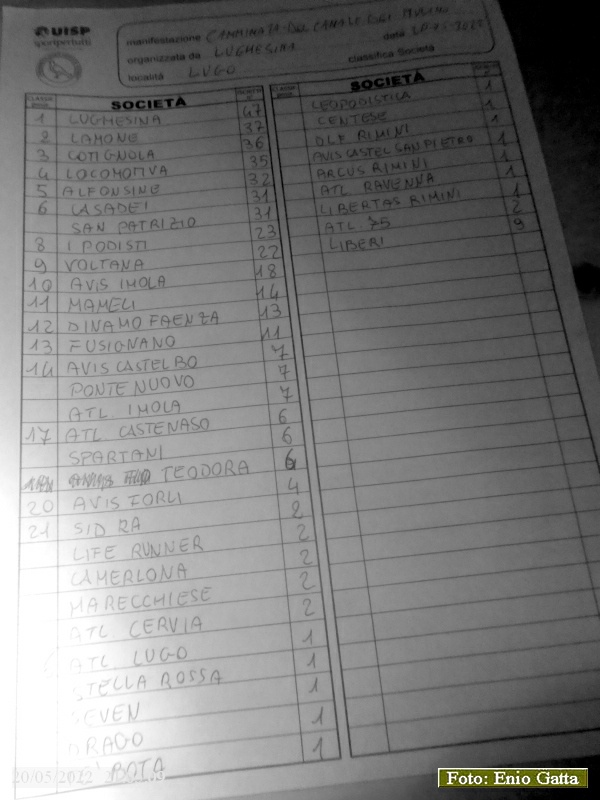 UISP
sportpertutti
manifestazione CAMMINATA DEL CANALE DEI MULINI
data 2022
organizzata da LUGHESINA
classifica Società
località LUGO
SOCIETÀ
1 LUGHESINA 47
2 LAMONE 37
3 COTIGNOLA 36
4 LOCOMOTIVA 35
5 ALFONSINE 32
6 CASADEI 31
SAN PATRIZIO 31
8 I PODISTI 23
9 VOLTANA 22
10 AVIS IMOLA 18
11 MAMELI 14
12 DINAMO FAENZA 13
13 FUSIGNANO 11
14 AVIS CASTEL BO 7
PONTE NUOVO 7
ATL. IMOLA 7
17 ATL CASTENASO 6
SPARTANI 6
TEODORA 6
20 AVIS FORLI 4
21 SIDRA 2
LIFE RUNNER 2
CAMERLONA 2
MARECCHIESE 2
ATL CERVIA 2
ATL LUGO 1
STELLA ROSSA 1
SEVEN 1
DRAGO 1
BOTA 1
SOCIETÀ
LEOPODISTICA 1
CENTESE 1
DLF RIMINI 1
AVIS CASTEL SAN PIETRO 1
ARCUS RIMINI 1
ATL RAVENNA 1
LIBERTAS RIMINI 1
ATL. 75 2
LIBERI 9
20/05/2022
Foto: Enio Gatta